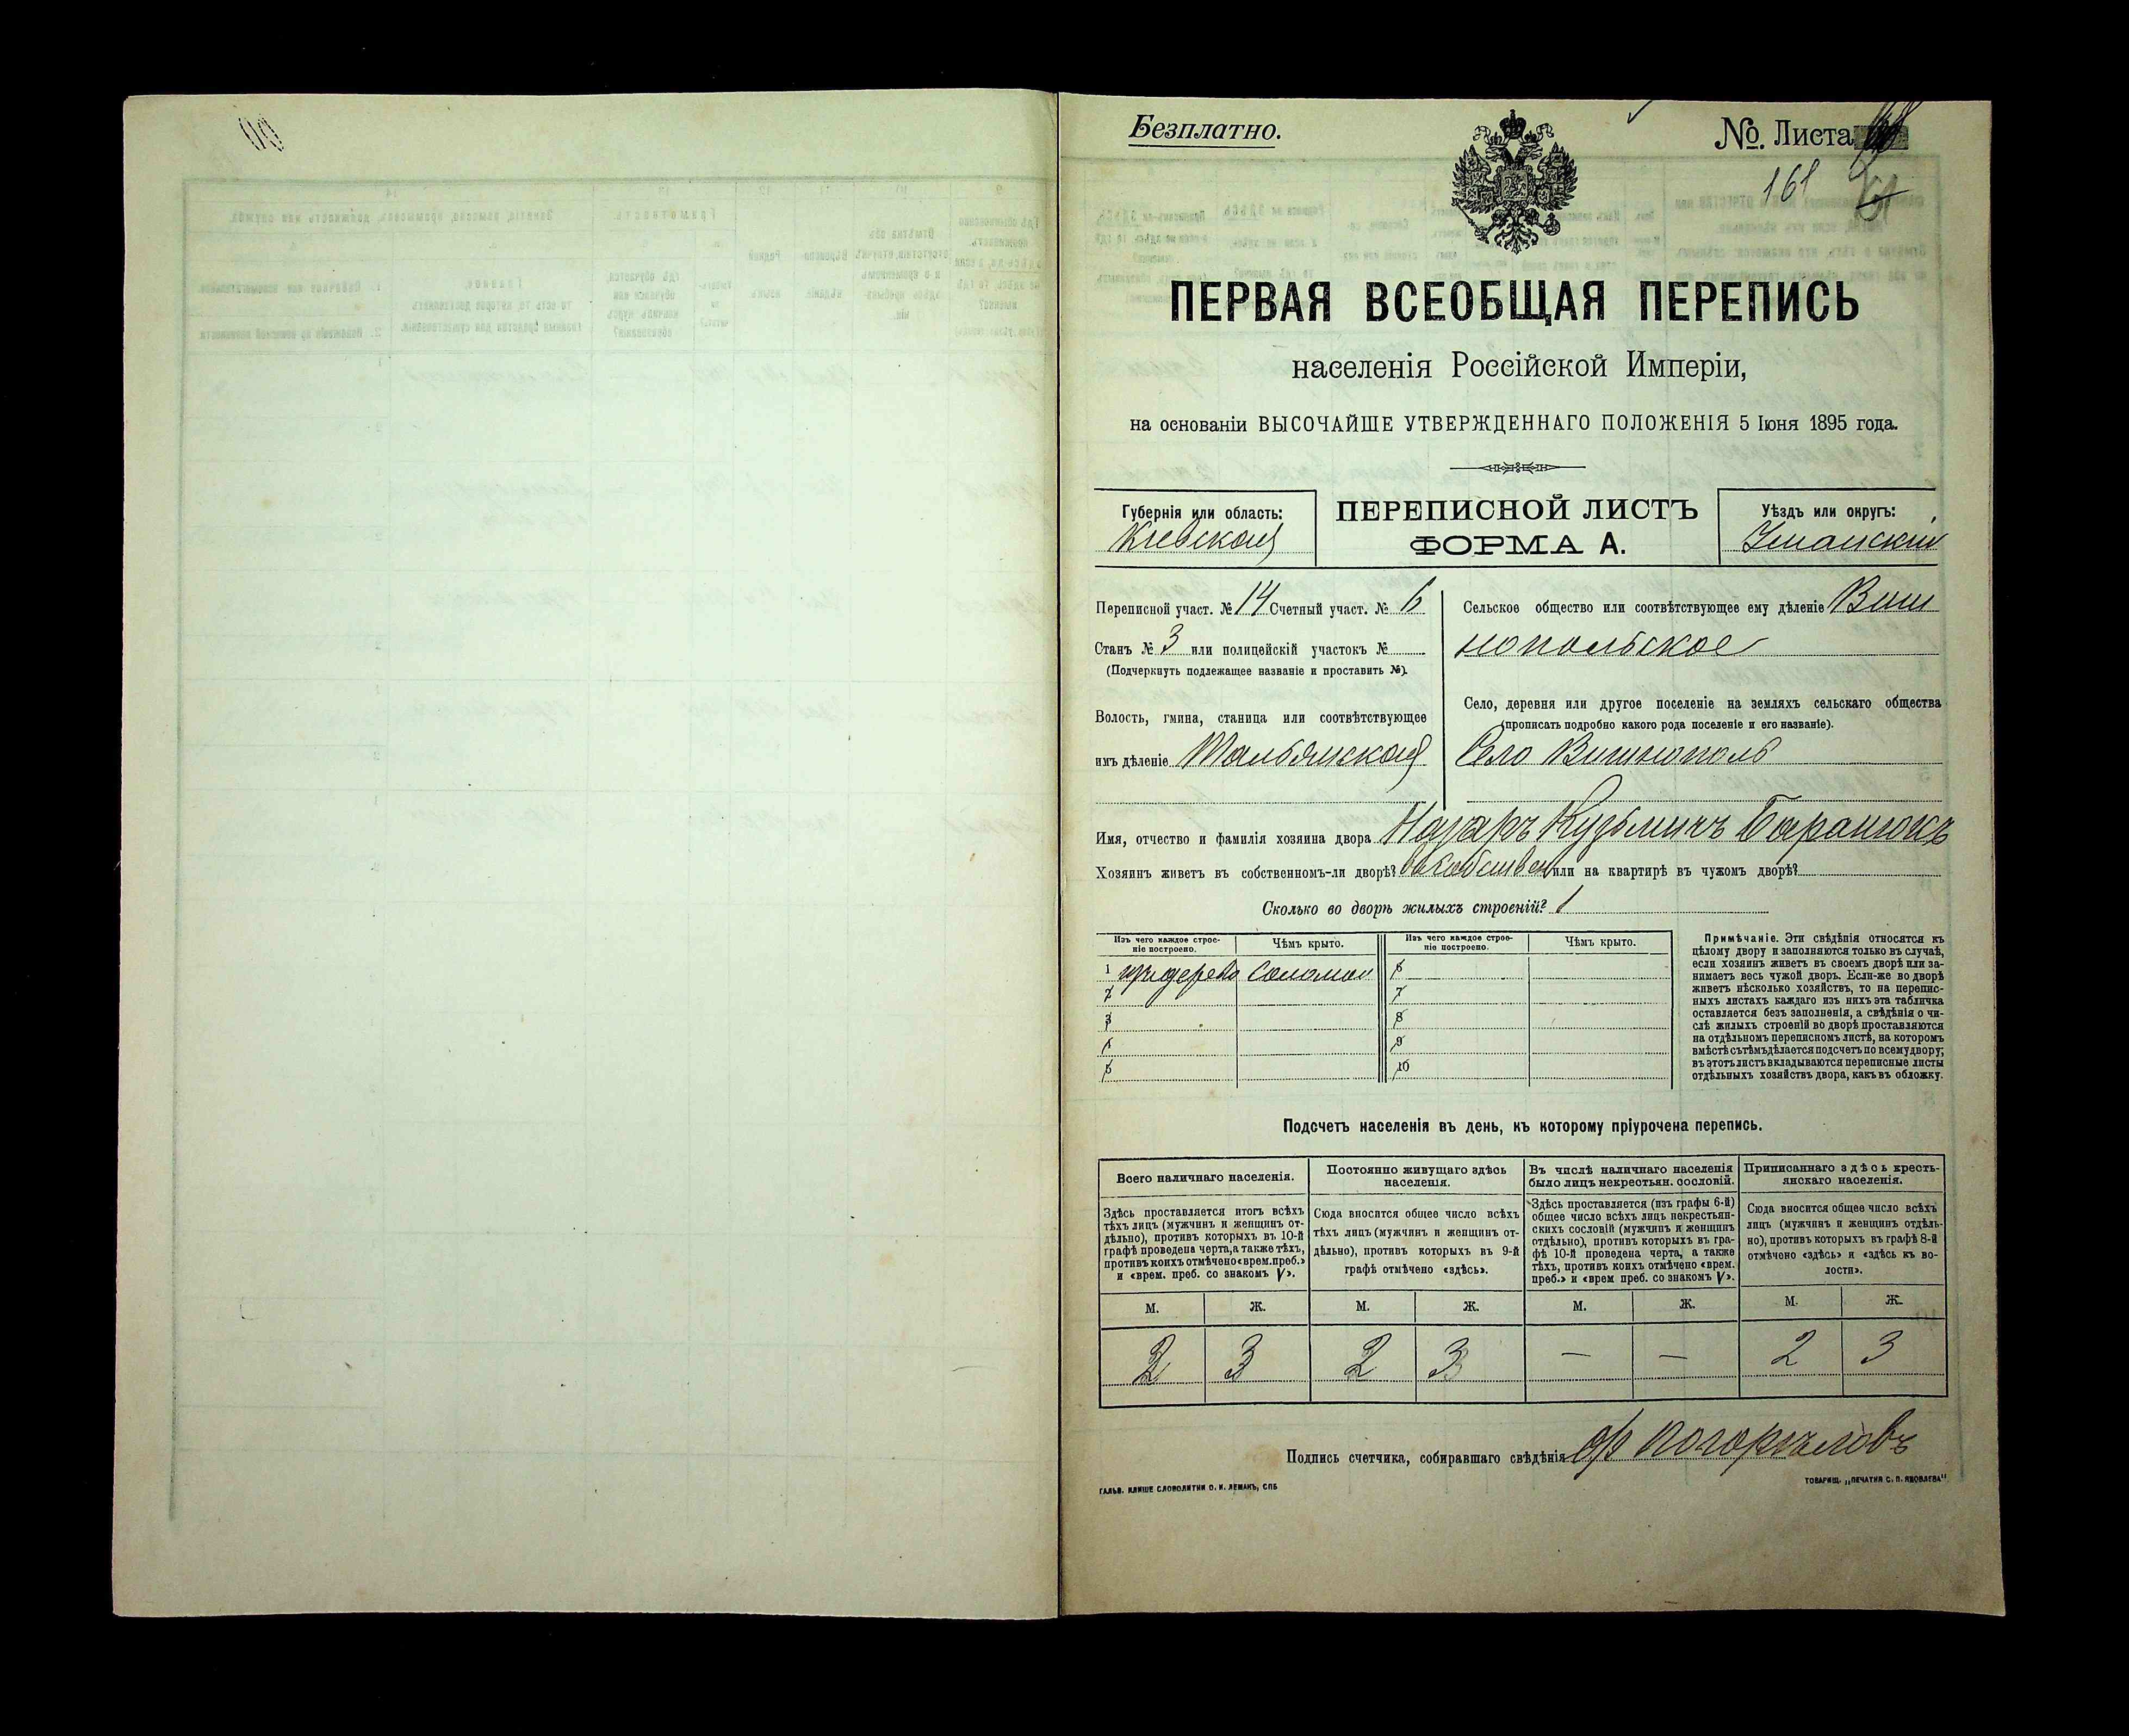 Безплатно.
№. Листа
161
ПЕРВАЯ ВСЕОБЩАЯ ПЕРЕПИСЬ
населенія Россійской Имперіи,
на основаніи ВЫСОЧАЙШЕ УТВЕРЖДЕННАГО ПОЛОЖЕНІЯ 5 Іюня 1895 года.
Губернія или область:
Кіевская
ПЕРЕПИСНОЙ ЛИСТЪ
ФОРМА А.
Уѣздъ или округъ:
Уманскій
Переписной участ. № 14 Счетный участ. № 6
Станъ № 3 или полицейскій участокъ №
(Подчеркнуть подлежащее названіе и проставить №).
Волость, гмина, станица или соотвѣтствующее
имъ дѣленіе Тальянская
Сельское общество или соотвѣтствующее ему дѣленіе Виш
нопольское
Село, деревня или другое поселеніе на земляхъ сельскаго общества
(прописать подробно какого рода поселеніе и его названіе).
Село Вишнополь
Имя, отчество и фамилія хозяина двора Назаръ Кузьмичъ Баранюкъ
Хозяинъ живетъ въ собственномъ-ли дворѣ? въ собствен или на квартирѣ въ чужомъ дворѣ?
Сколько во дворѣ жилыхъ строеній? 1
Изъ чего каждое строе-
ніе построено.
Чѣмъ крыто.
Изъ чего каждое строе-
ніе построено.
Чѣмъ крыто.
1 соломои 6
2 7
3 8
4 9
5 10
Примѣчаніе. Эти свѣдѣнія относятся къ
цѣлому двору и заполняются только въ случаѣ,
если хозяинъ живетъ въ своемъ дворѣ или за-
нимаетъ весь чужой дворъ. Если-же во дворѣ
живетъ нѣсколько хозяйствъ, то на перепис-
ныхъ листахъ каждаго изъ нихъ эта табличка
оставляется безъ заполненія, а свѣдѣнія о чи-
слѣ жилыхъ строеній во дворѣ проставляются
на отдѣльномъ переписномъ листѣ, на которомъ
вмѣстѣ съ тѣмъ дѣлается подсчетъ по всему двору;
въ этотъ листъ вкладываются переписные листы
отдѣльныхъ хозяйствъ двора, какъ въ обложку.
Подсчетъ населенія въ день, къ которому пріурочена перепись.
Всего наличнаго населенія.
Здѣсь проставляется итогъ всѣхъ
тѣхъ лицъ (мужчинъ и женщинъ от-
дѣльно), противъ которыхъ въ 10-й
графѣ проведена черта, а также тѣхъ,
противъ коихъ отмѣчено «врем. преб.»
и «врем. преб. со знакомъ V».
Постоянно живущаго здѣсь
населенія.
Сюда вносится общее число всѣхъ
тѣхъ лицъ (мужчинъ и женщинъ от-
дѣльно), противъ которыхъ въ 9-й
графѣ отмѣчено «здѣсь».
Въ числѣ наличнаго населенія
было лицъ некрестьян. сословій.
Здѣсь проставляется (изъ графы 6-й)
общее число всѣхъ лицъ некрестьян-
скихъ сословій (мужчинъ и женщинъ
отдѣльно), противъ которыхъ въ гра-
фѣ 10-й проведена черта, а также
тѣхъ, противъ коихъ отмѣчено «врем.
преб.» и «врем преб. со знакомъ V».
Приписаннаго здѣсь кресть-
янскаго населенія.
Сюда вносится общее число всѣхъ
лицъ (мужчинъ и женщинъ отдѣль-
но), противъ которыхъ въ графѣ 8-й
отмѣчено «здѣсь» и «здѣсь къ во-
лости».
М. Ж. М. Ж. М. Ж. М. Ж.
2 3 2 3 — — 2 3
Подпись счетчика, собиравшаго свѣдѣнія Погорѣловъ
ГАЛЬВ. КЛИШЕ СЛОВОЛИТНИ О. И. ЛЕМАНЪ, СПБ
ТОВАРИЩ. „ПЕЧАТНЯ С. П. ЯКОВЛЕВА"